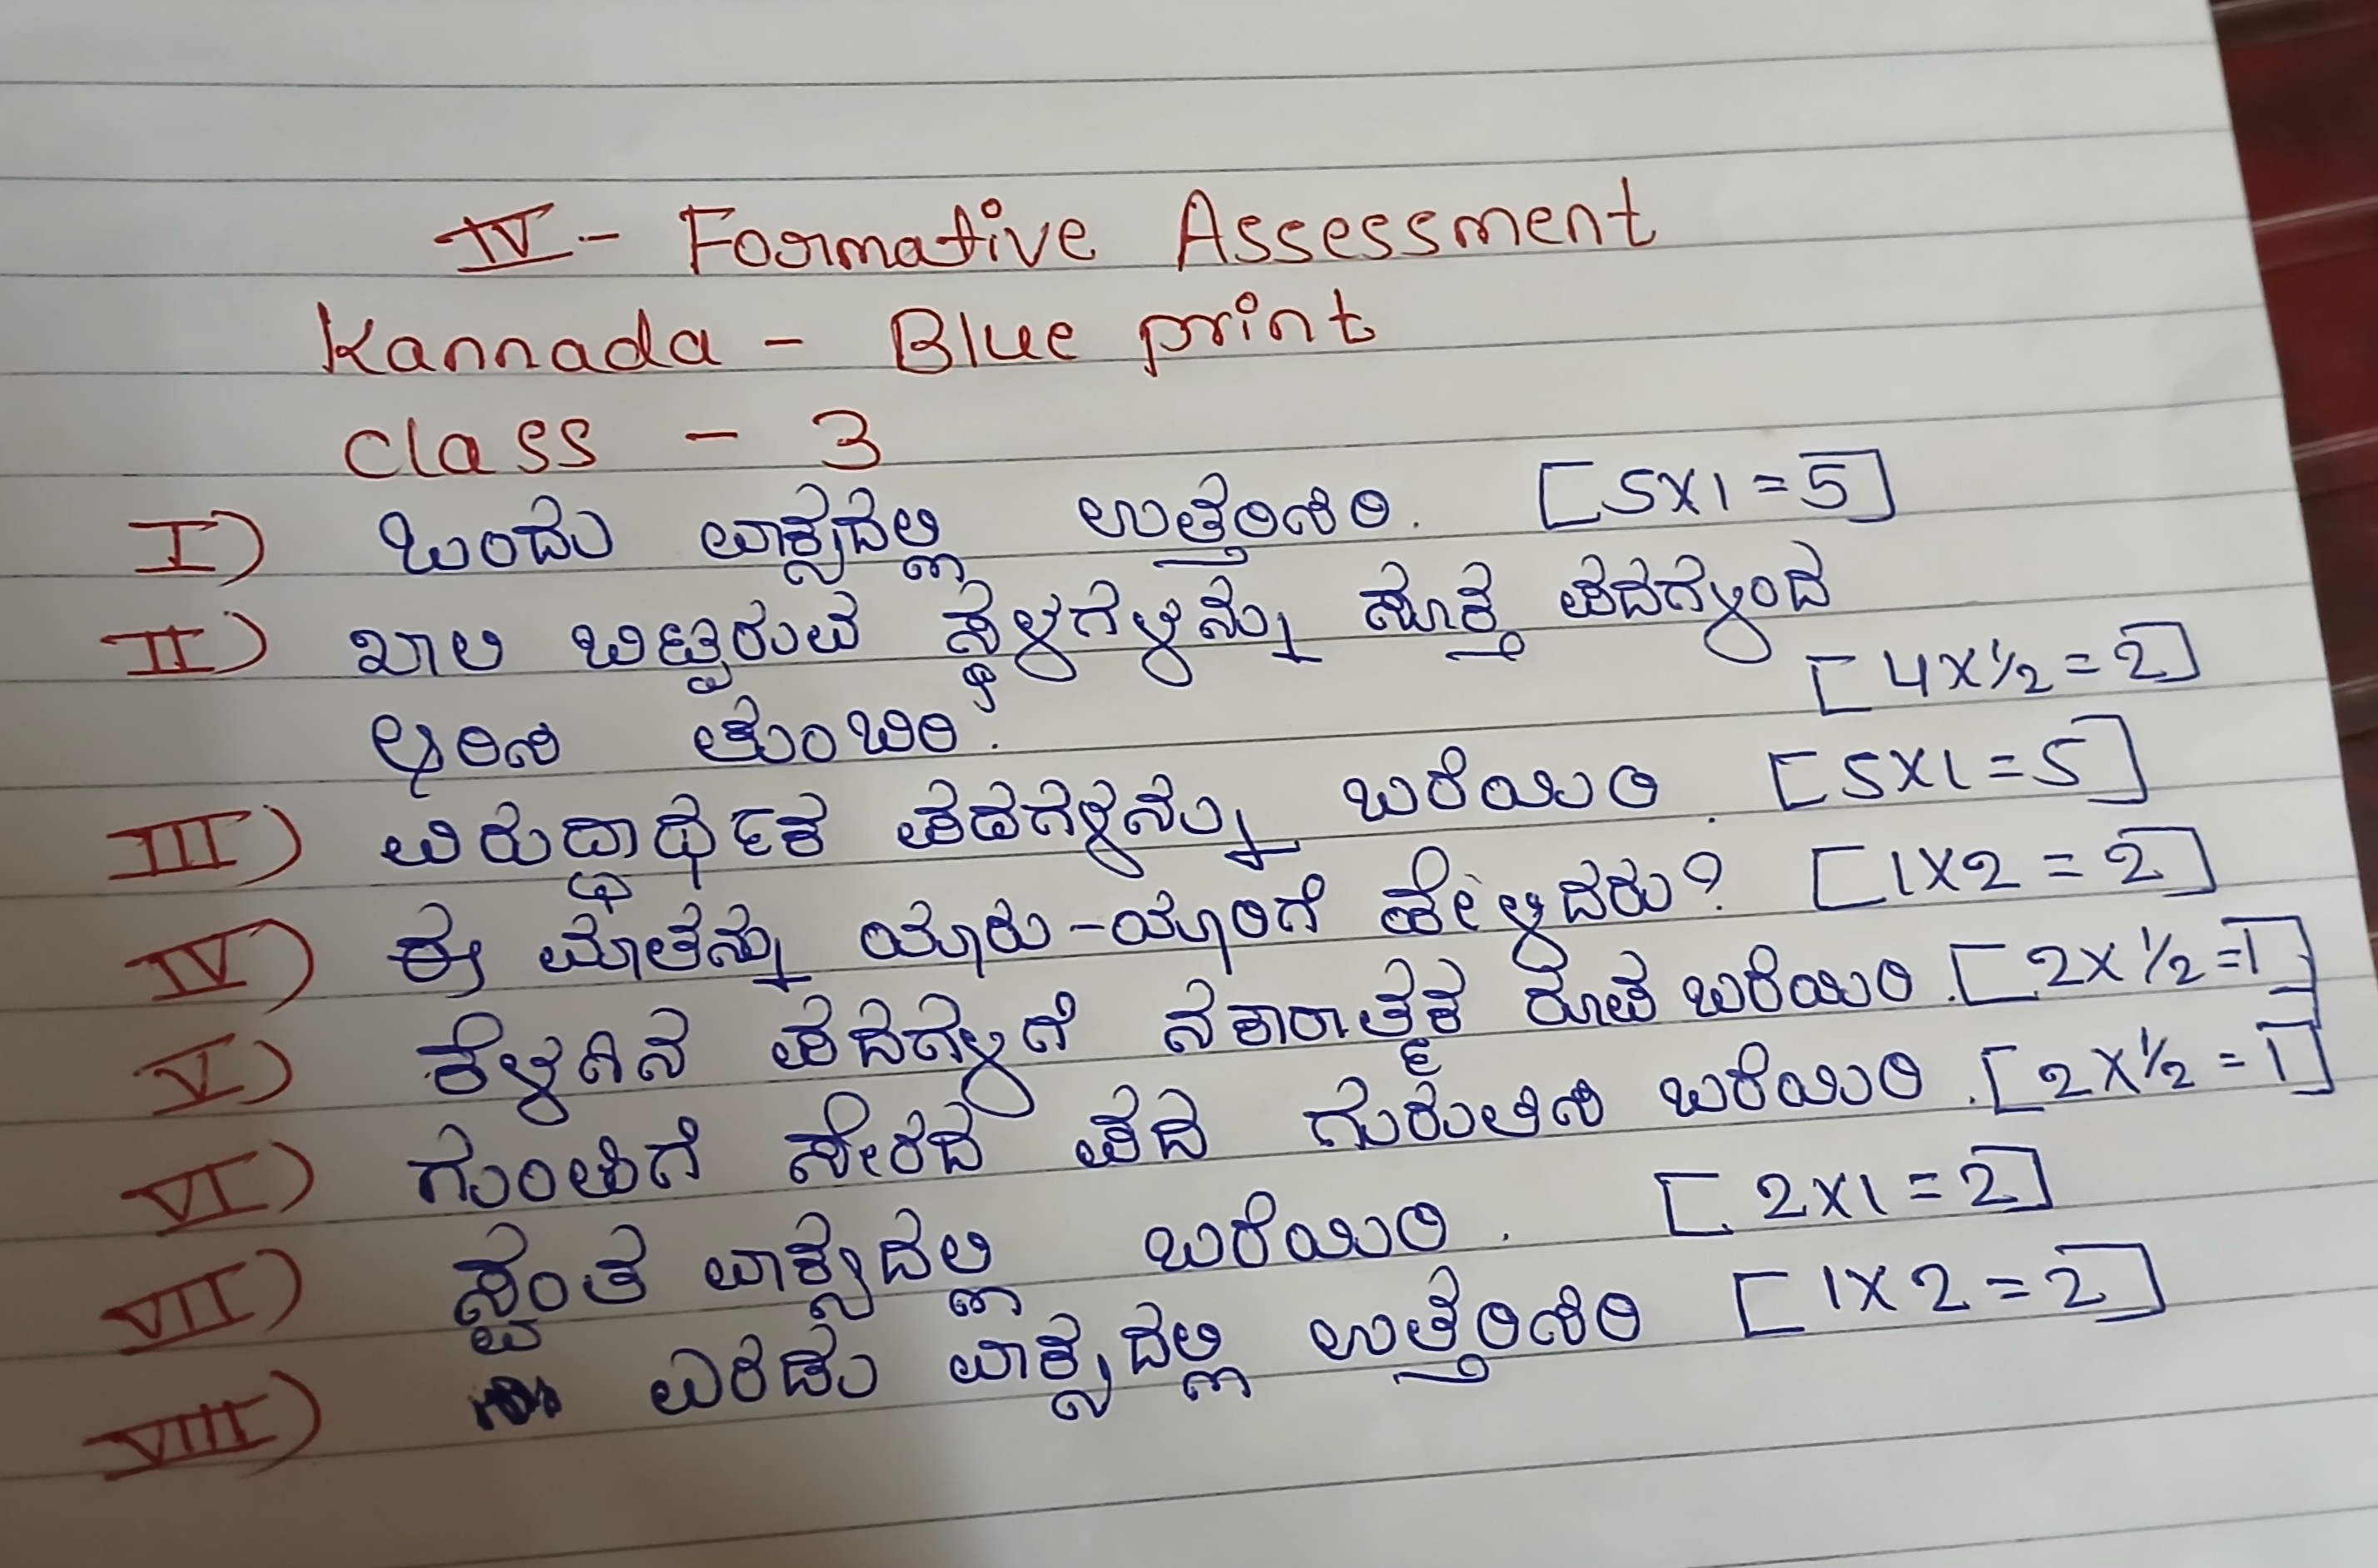 IV - Formative Assessment
Kannada - Blue print
class - 3
I) ಒಂದು ವಾಕ್ಯದಲ್ಲಿ ಉತ್ತರಿಸಿರಿ. [5x1=5]
II) ಖಾಲಿ ಬಿಟ್ಟಿರುವ ಸ್ಥಳಗಳನ್ನು ಸೂಕ್ತ ಪದಗಳಿಂದ
ಆರಿಸಿ ತುಂಬಿರಿ. [4x½=2]
III) ವಿರುದ್ಧಾರ್ಥಕ ಪದಗಳನ್ನು ಬರೆಯಿರಿ. [5x1=5]
IV) ಈ ಮಾತನ್ನು ಯಾರು-ಯಾರಿಗೆ ಹೇಳಿದರು? [1x2=2]
V) ಕೆಳಗಿನ ಪದಗಳಿಗೆ ನಕಾರಾತ್ಮಕ ರೂಪ ಬರೆಯಿರಿ. [2x½=1]
VI) ಗುಂಪಿಗೆ ಸೇರದ ಪದ ಗುರುತಿಸಿ ಬರೆಯಿರಿ. [2x½=1]
VII) ಸ್ವಂತ ವಾಕ್ಯದಲ್ಲಿ ಬರೆಯಿರಿ. [2x1=2]
VIII) ಎರಡು ವಾಕ್ಯದಲ್ಲಿ ಉತ್ತರಿಸಿರಿ [1x2=2]